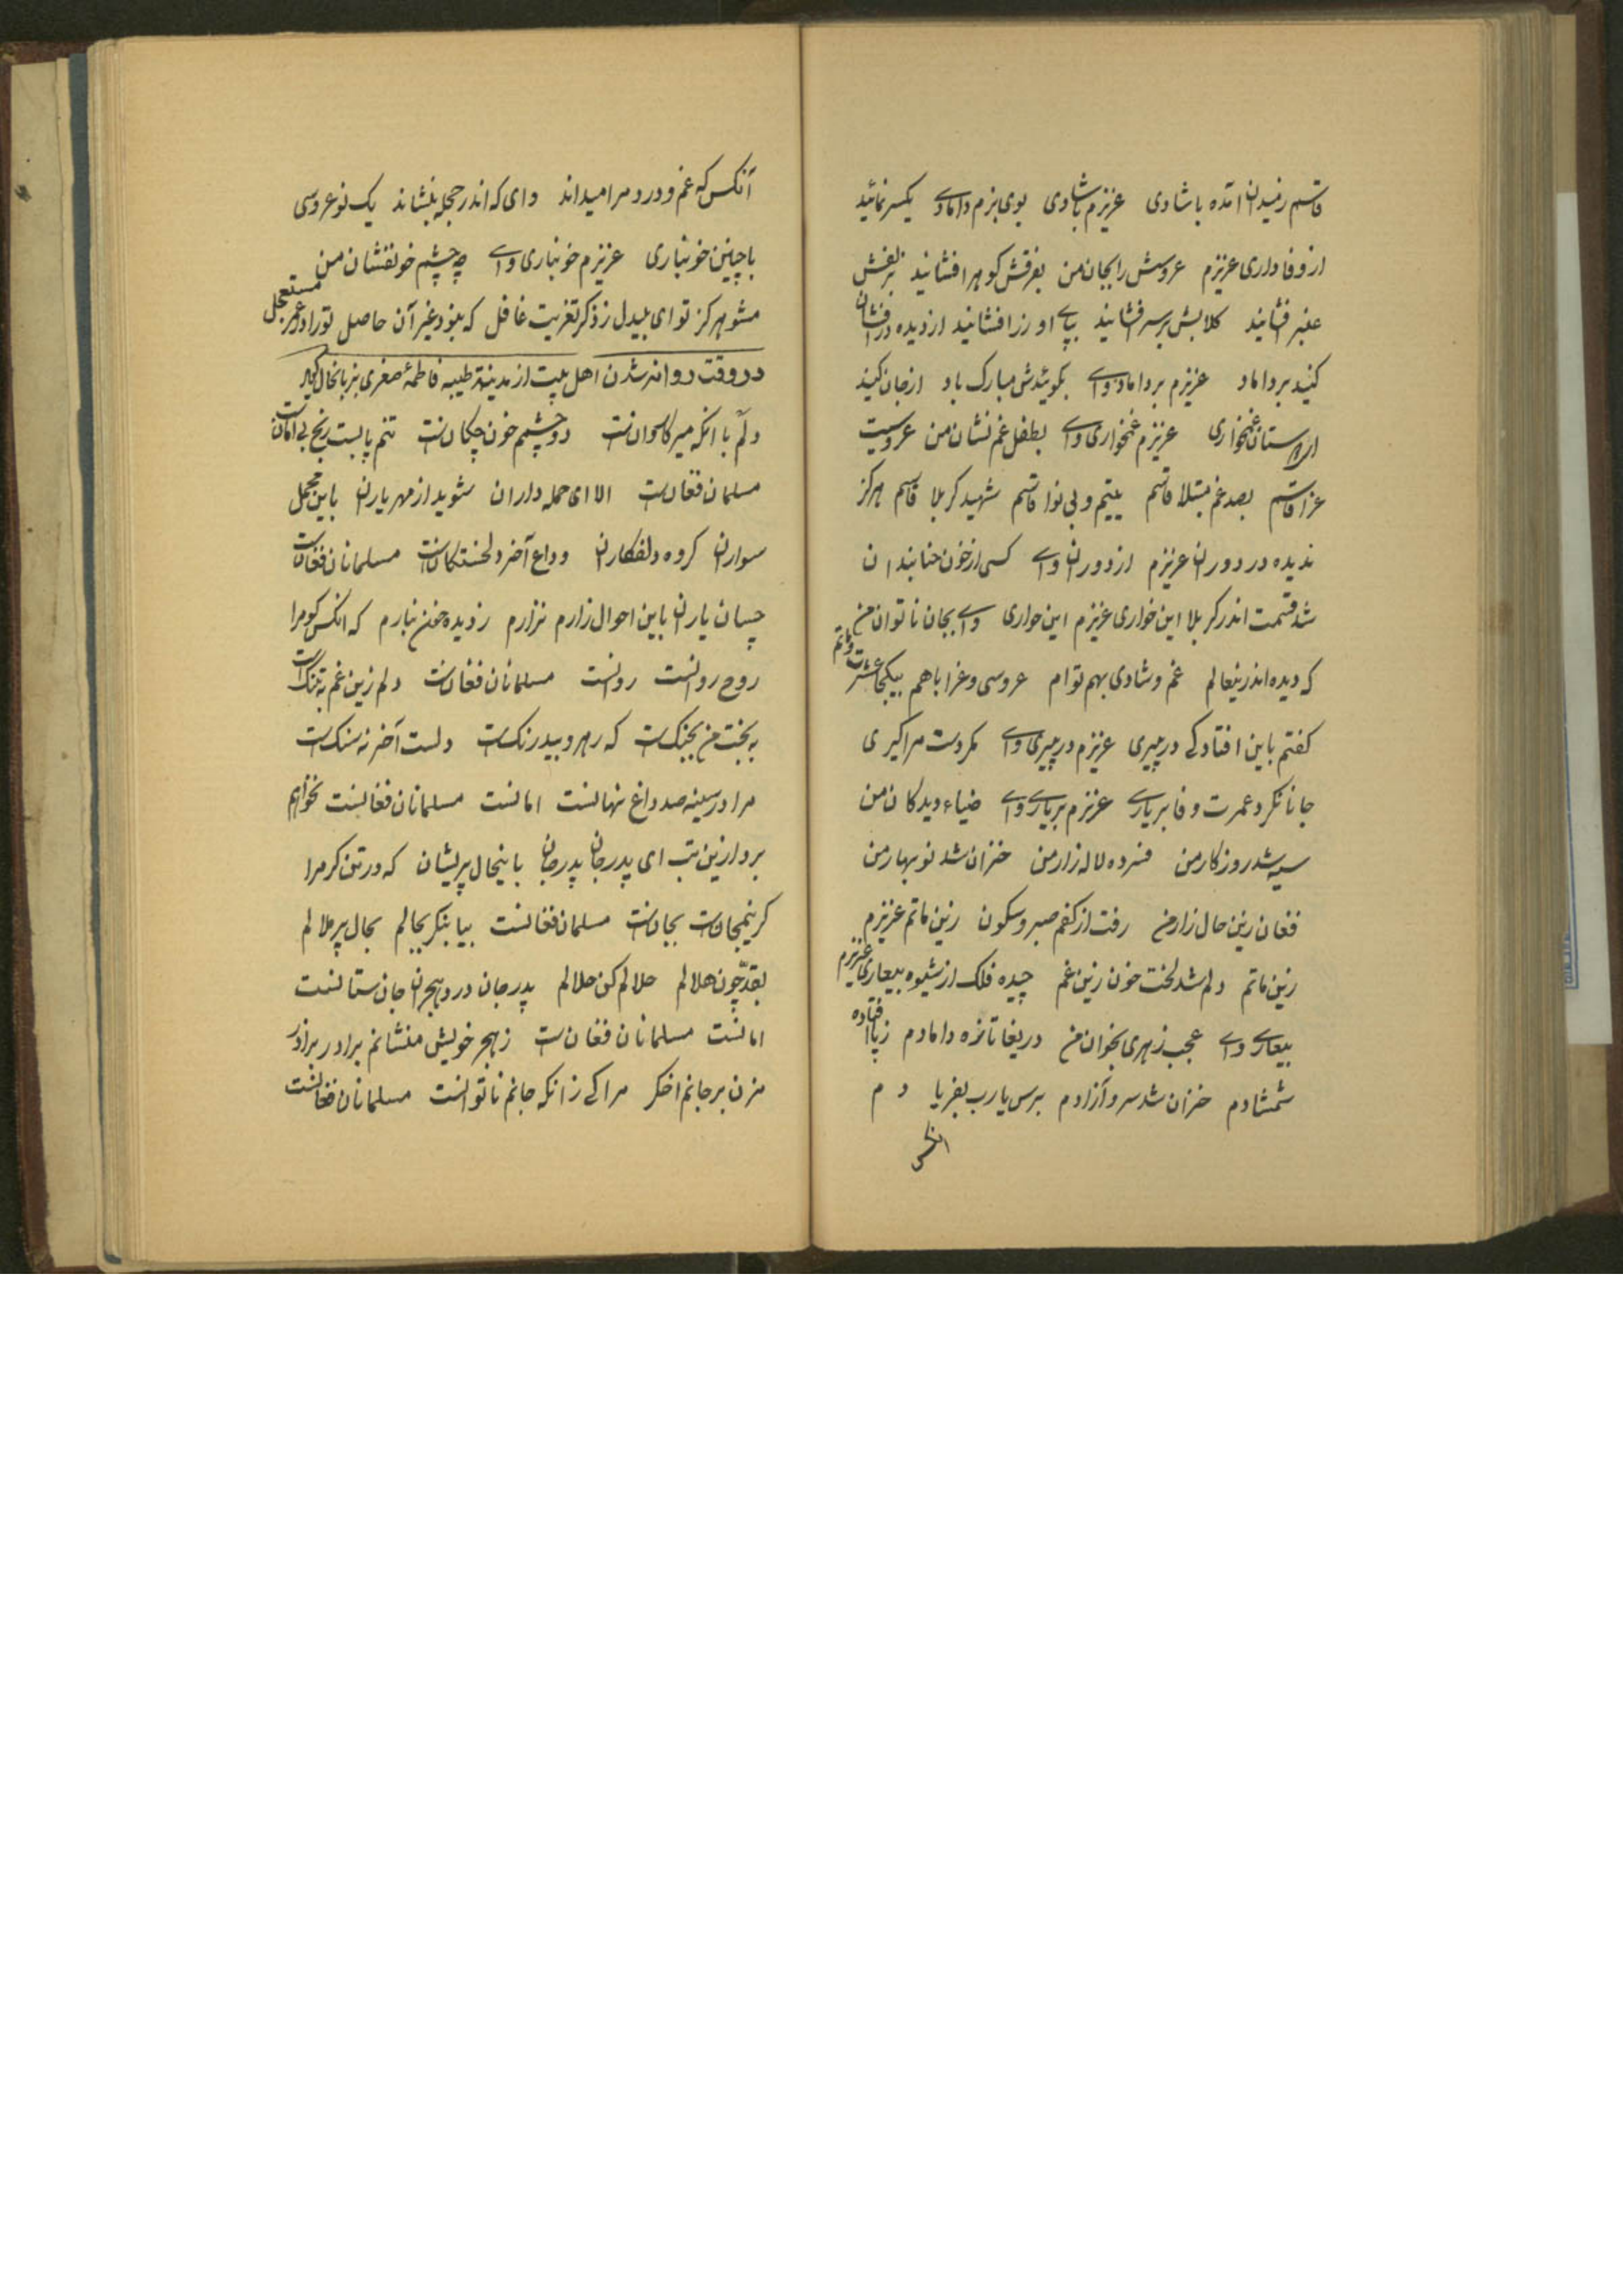 قاسم زمیدان آمده باشادی عزیزم باشادی بوی بزم دامادی یکسر نمائید
از وفاداری عزیزم عروسش رابجان من بفرقش کوهر افشانید بزلفش
عنبر افشانید کلابش برسر افشانید بپای او زرافشانید ازدیده درافشان
کنید برداماد عزیزم برداماد وای بکوئیدش مبارک باد ازجان کنید
غمخواری عزیزم غمخواری وای بطفل غم نشان من عروسیت
عزا قاسم بصد غم مبتلا قاسم یتیم و بی نوا قاسم شهید کربلا قاسم هرکز
ندیده در دوران عزیزم از دوران وای کسی از خون حنابندان
شد قسمت اندر کربلا این خواری عزیزم این خواری وای بجان ناتوان من
که دیده اندرینعالم غم و شادی بهم توام عروسی و عزا باهم بیکجا عشرت و ماتم
کفتم باین افتادکی درپیری عزیزم درپیری وای مکر دست مرا کیری
جانا نکرد عمرت وفا برپای عزیزم برپای وای ضیاء دیدکان من
سیه شد روزکار من فسرده لاله زار من خزان شد نوبهار من
فغان زین حال زار من رفت از کفم صبر و سکون زین ماتم عزیزم
زین ماتم دلم شد لخت خون زین غم چیده فلک از شیوه بیعاری عزیزم
بیعاری وای عجب زهری بخوان من دریغا تازه دامادم زپا افتاده
شمشادم خزان شد سرو آزادم برس یارب بفریادم
انکس
آنکس که غم و درد مرا میداند وای که اندر حجله بنشاند یک نوعروسی
باچنین خونباری عزیزم خونباری وای چه چشم خونفشان من
مشو هرکز تو ای بیدل زذکر تعزیت غافل که بنود غیر آن حاصل تورا در عمر مستعجل
در وقت روانه شدن اهل بیت از مدینه طیبه فاطمهٔ صغری بزبانحال کوید
دلم با انکه میر کاروانست دو چشمم خون چکانست تنم پابست رنج بی امانست
مسلمانان فغانست الا ای حمله داران شوید از مهر یاران باین محمل
سواران کروه دلفکاران وداع آخر دلخستکانست مسلمانان فغانست
چسان یاران باین احوال زارم نزارم زدیده خون نبارم که انکس کو مرا
روح روانست روانست مسلمانان فغانست دلم زین غم به تنکست
به بخت من بجنکست که رهرو بیدرنکست دلست آخر نه سنکست
مرا در سینه صد داغ نهانست امانست مسلمانان فغانست نخواهم
برد ازین تب ای پدرجان پدرجان باینحال پریشان که در تن کر مرا
کر نیمجانست بجانست مسلمانان فغانست بیا بنکر بحالم بحال پر ملالم
بقد چون هلالم حلالم کن حلالم پدر جان درد هجران جان ستانست
امانست مسلمانان فغانست زهجر خویش منشانم برادر برادر
مزن بر جانم اخکر مرا کی زانکه جانم ناتوانست مسلمانان فغانست